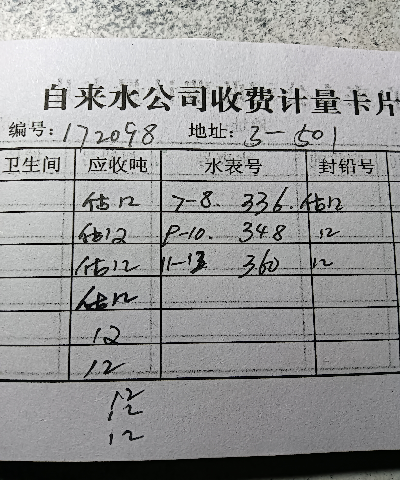 自来水公司收费计量卡片
编号: 172098 地址: 3-501
卫生间 应收吨 水表号 封铅号
估12 7-8. 336. 估12
估12 9-10. 348 12
估12 11-12 360 12
估12
12
12
12
12